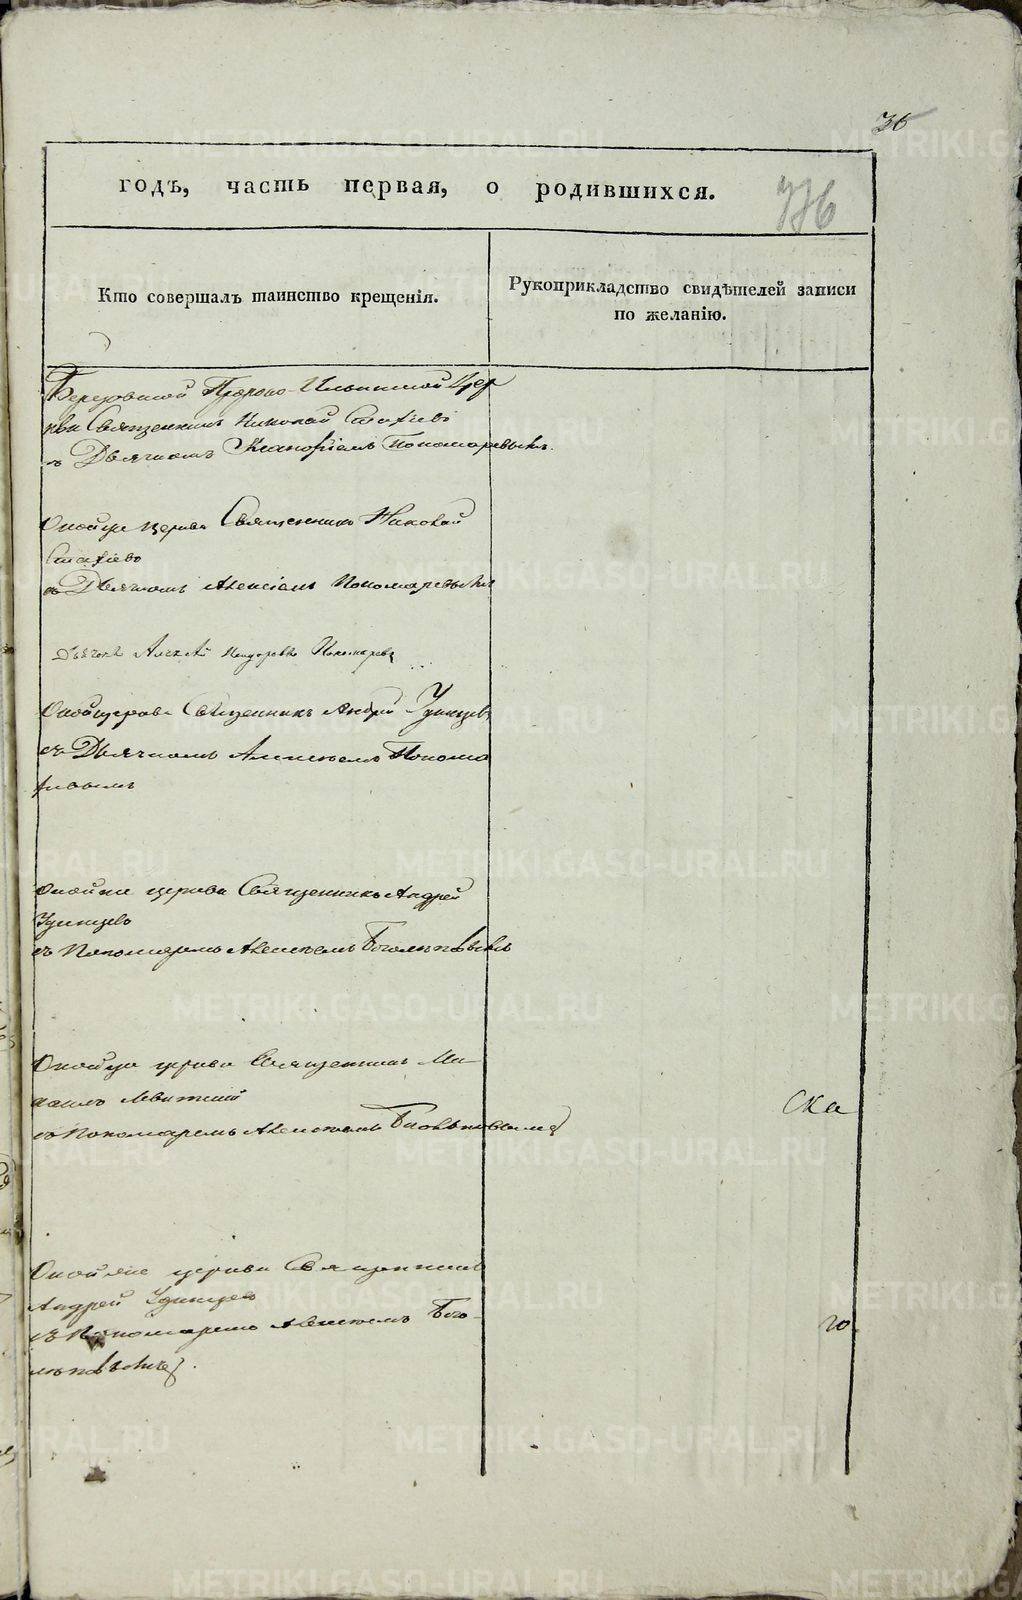 36
годъ, часть первая, о родившихся.
Кто совершалъ таинство крещенія.
Рукоприкладство свидѣтелей записи
по желанію.
Березовской Пророко-Ильинской Цер
кви Священникъ Николай Стахіевъ
съ Дьячкомъ Пономаревымъ.
Оной же церкви Священникъ Николай
Стахіевъ
съ Дьячкомъ Алексіемъ Пономаревымъ
Дьячекъ Пономаревъ
Оной церкви Священникъ Андрей Удинцевъ
съ Дьячкомъ Алексѣемъ Понома
ревымъ
Оной же церкви Священникъ Андрей
Удинцевъ
съ Пономаремъ Алексѣемъ Боголѣповымъ
Оной же церкви Священникъ Ми
хаилъ Левитскій
съ Пономаремъ Алексѣемъ Боголѣповымъ
ска
Оной же церкви Священникъ
Андрей Удинцевъ
съ Пономаремъ Алексѣемъ Бого-
лѣповымъ.
го
METRIKI.GASO-URAL.RU